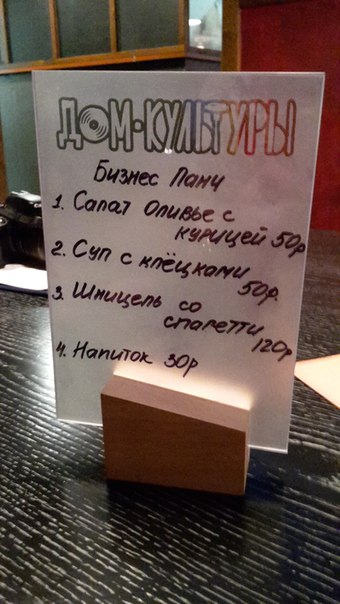 ДОМ·КУЛЬТУРЫ
Бизнес Ланч
1. Салат Оливье с
курицей 50р
2. Суп с клёцками
50р.
3. Шницель со
спагетти
120р
4. Напиток 30р